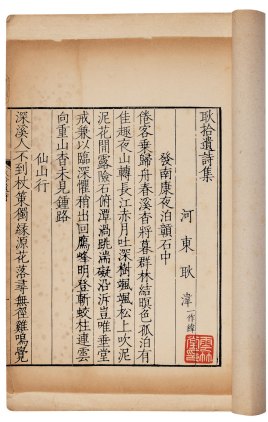 耿拾遺詩集
河東耿湋一作緯
發南康夜泊灨石中
倦客乗歸舟春溪杳將暮群林結暝色孤泊有
佳趣夜山轉長江赤月吐深樹颯颯松上吹泥
泥花間露險石俯潭渦跳湍礙沿泝豈唯垂堂
戒兼以臨深懼稍出回鴈峰明登斬蛟柱連雲
向重山杳未見鍾路
仙山行
深溪人不到杖策獨緣源花落尋無徑雞鳴覺